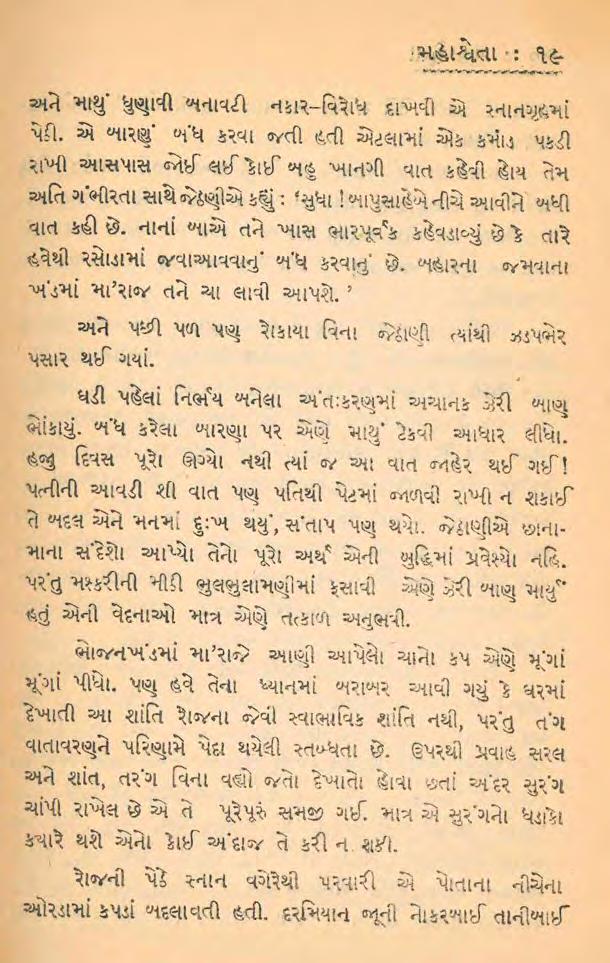 મહાશ્વેતા : ૧૯
અને માથું ધુણાવી બનાવટી નકાર–વિરોધ દાખવી એ સ્નાનગૃહમાં
પેઠી. એ બારણું બંધ કરવા જતી હતી એટલામાં એક કમાડ પકડી
રાખી આસપાસ જોઈ લઈ કોઈ બહુ ખાનગી વાત કહેવી હોય તેમ
અતિ ગંભીરતા સાથે જેઠાણીએ કહ્યું : ‘સુધા ! બાપુસાહેબે નીચે આવીને બધી
વાત કહી છે. નાનાં બાએ તને ખાસ ભારપૂર્વક કહેવડાવ્યું છે કે તારે
હવેથી રસોડામાં જવાઆવવાનું બંધ કરવાનું છે. બહારના જમવાના
ખંડમાં મા’રાજ તને ચા લાવી આપશે. ’
અને પછી પળ પણ રોકાયા વિના જેઠાણી ત્યાંથી ઝડપભેર
પસાર થઈ ગયાં.
ઘડી પહેલાં નિર્ભય બનેલા અંતઃકરણમાં અચાનક ઝેરી બાણ
ભોંકાયું. બંધ કરેલા બારણા પર એણે માથું ટેકવી આધાર લીધો.
હજુ દિવસ પૂરો ઊગ્યો નથી ત્યાં જ આ વાત જાહેર થઈ ગઈ !
પત્નીની આવડી શી વાત પણ પતિથી પેટમાં જાળવી રાખી ન શકાઈ
તે બદલ એને મનમાં દુઃખ થયું, સંતાપ પણ થયો. જેઠાણીએ છાના-
માના સંદેશો આપ્યો તેનો પૂરો અર્થ એની બુદ્ધિમાં પ્રવેશ્યો નહિ.
પરંતુ મશ્કરીની મીઠી ભુલભુલામણીમાં ફસાવી એણે ઝેરી બાણ માર્યું
હતું એની વેદનાઓ માત્ર એણે તત્કાળ અનુભવી.
ભોજનખંડમાં મા’રાજે આણી આપેલો ચાનો કપ એણે મૂંગાં
મૂંગાં પીધો. પણ હવે તેના ધ્યાનમાં બરાબર આવી ગયું કે ઘરમાં
દેખાતી આ શાંતિ રોજના જેવી સ્વાભાવિક શાંતિ નથી, પરંતુ તંગ
વાતાવરણને પરિણામે પેદા થયેલી સ્તબ્ધતા છે. ઉપરથી પ્રવાહ સરલ
અને શાંત, તરંગ વિના વહ્યો જતો દેખાતો હોવા છતાં અંદર સુરંગ
ચાંપી રાખેલ છે એ તે પૂરેપૂરું સમજી ગઈ. માત્ર એ સુરંગનો ધડાકો
ક્યારે થશે એનો કોઈ અંદાજ તે કરી ન શકી.
રોજની પેઠે સ્નાન વગેરેથી પરવારી એ પોતાના નીચેના
ઓરડામાં કપડાં બદલાવતી હતી. દરમિયાન જૂની નોકરબાઈ તાનીબાઈ